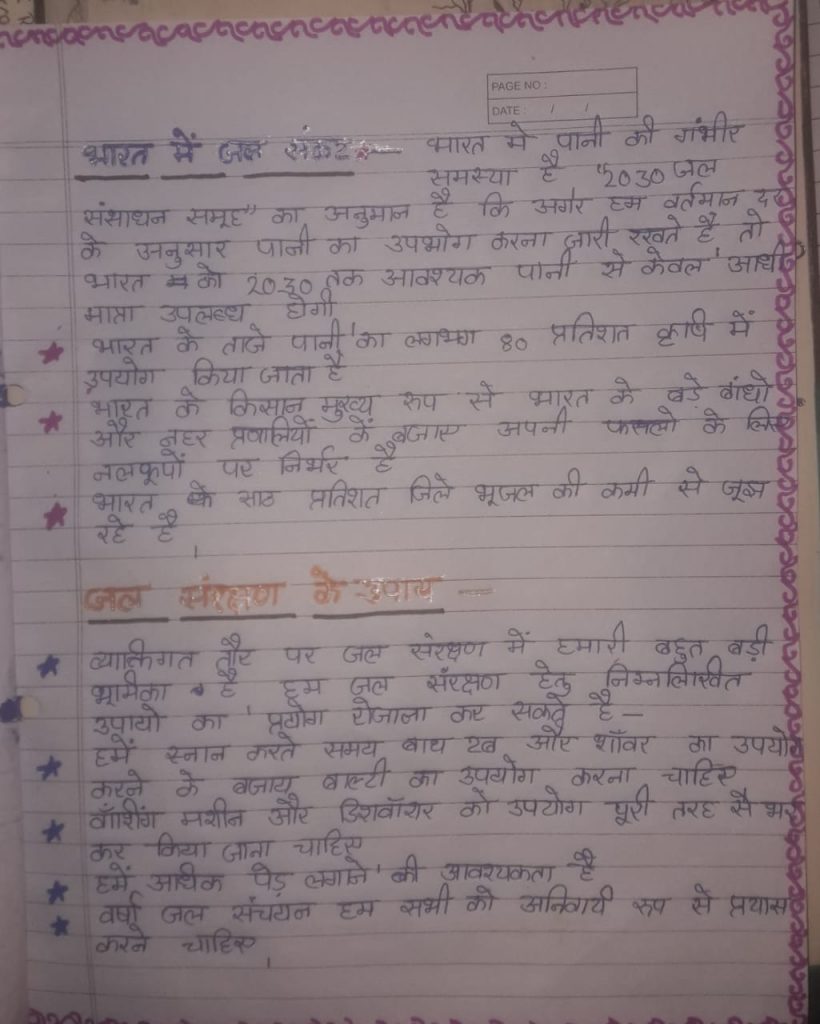 PAGE NO :
DATE : / /
भारत में जल संकट :— भारत मे पानी की गंभीर
समस्या है "2030 जल
संसाधन समूह" का अनुमान है कि अगर हम वर्तमान
के अनुसार पानी का उपभोग करना जारी रखते है तो
भारत को 2030 तक आवश्यक पानी से केवल आधी
मात्रा उपलब्ध होगी
भारत के ताजे पानी का लगभग 80 प्रतिशत कृषि में
उपयोग किया जाता है
भारत के किसान मुख्य रुप से भारत के बड़े बांधो
और नहर प्रणालियों के बजाए अपनी फसलो के लिए
नलकूपों पर निर्भर है
भारत के साठ प्रतिशत जिले भूजल की कमी से जूझ
रहे है ।
जल संरक्षण के उपाय —
व्यक्तिगत तौर पर जल संरक्षण में हमारी बहुत बड़ी
भूमिका है हम जल संरक्षण हेतु निम्नलिखित
उपायो का प्रयोग रोजाला कर सकते है —
हमें स्नान करते समय बाथ टब और शॉवर का उपयोग
करने के बजाय बाल्टी का उपयोग करना चाहिए
वॉशिंग मशीन और डिशवॉशर को उपयोग पूरी तरह से भर
कर किया जाना चाहिए
हमें अधिक पेड़ लगाने की आवश्यकता है
वर्षा जल संचयन हम सभी को अनिवार्य रुप से प्रयास
करने चाहिए ।